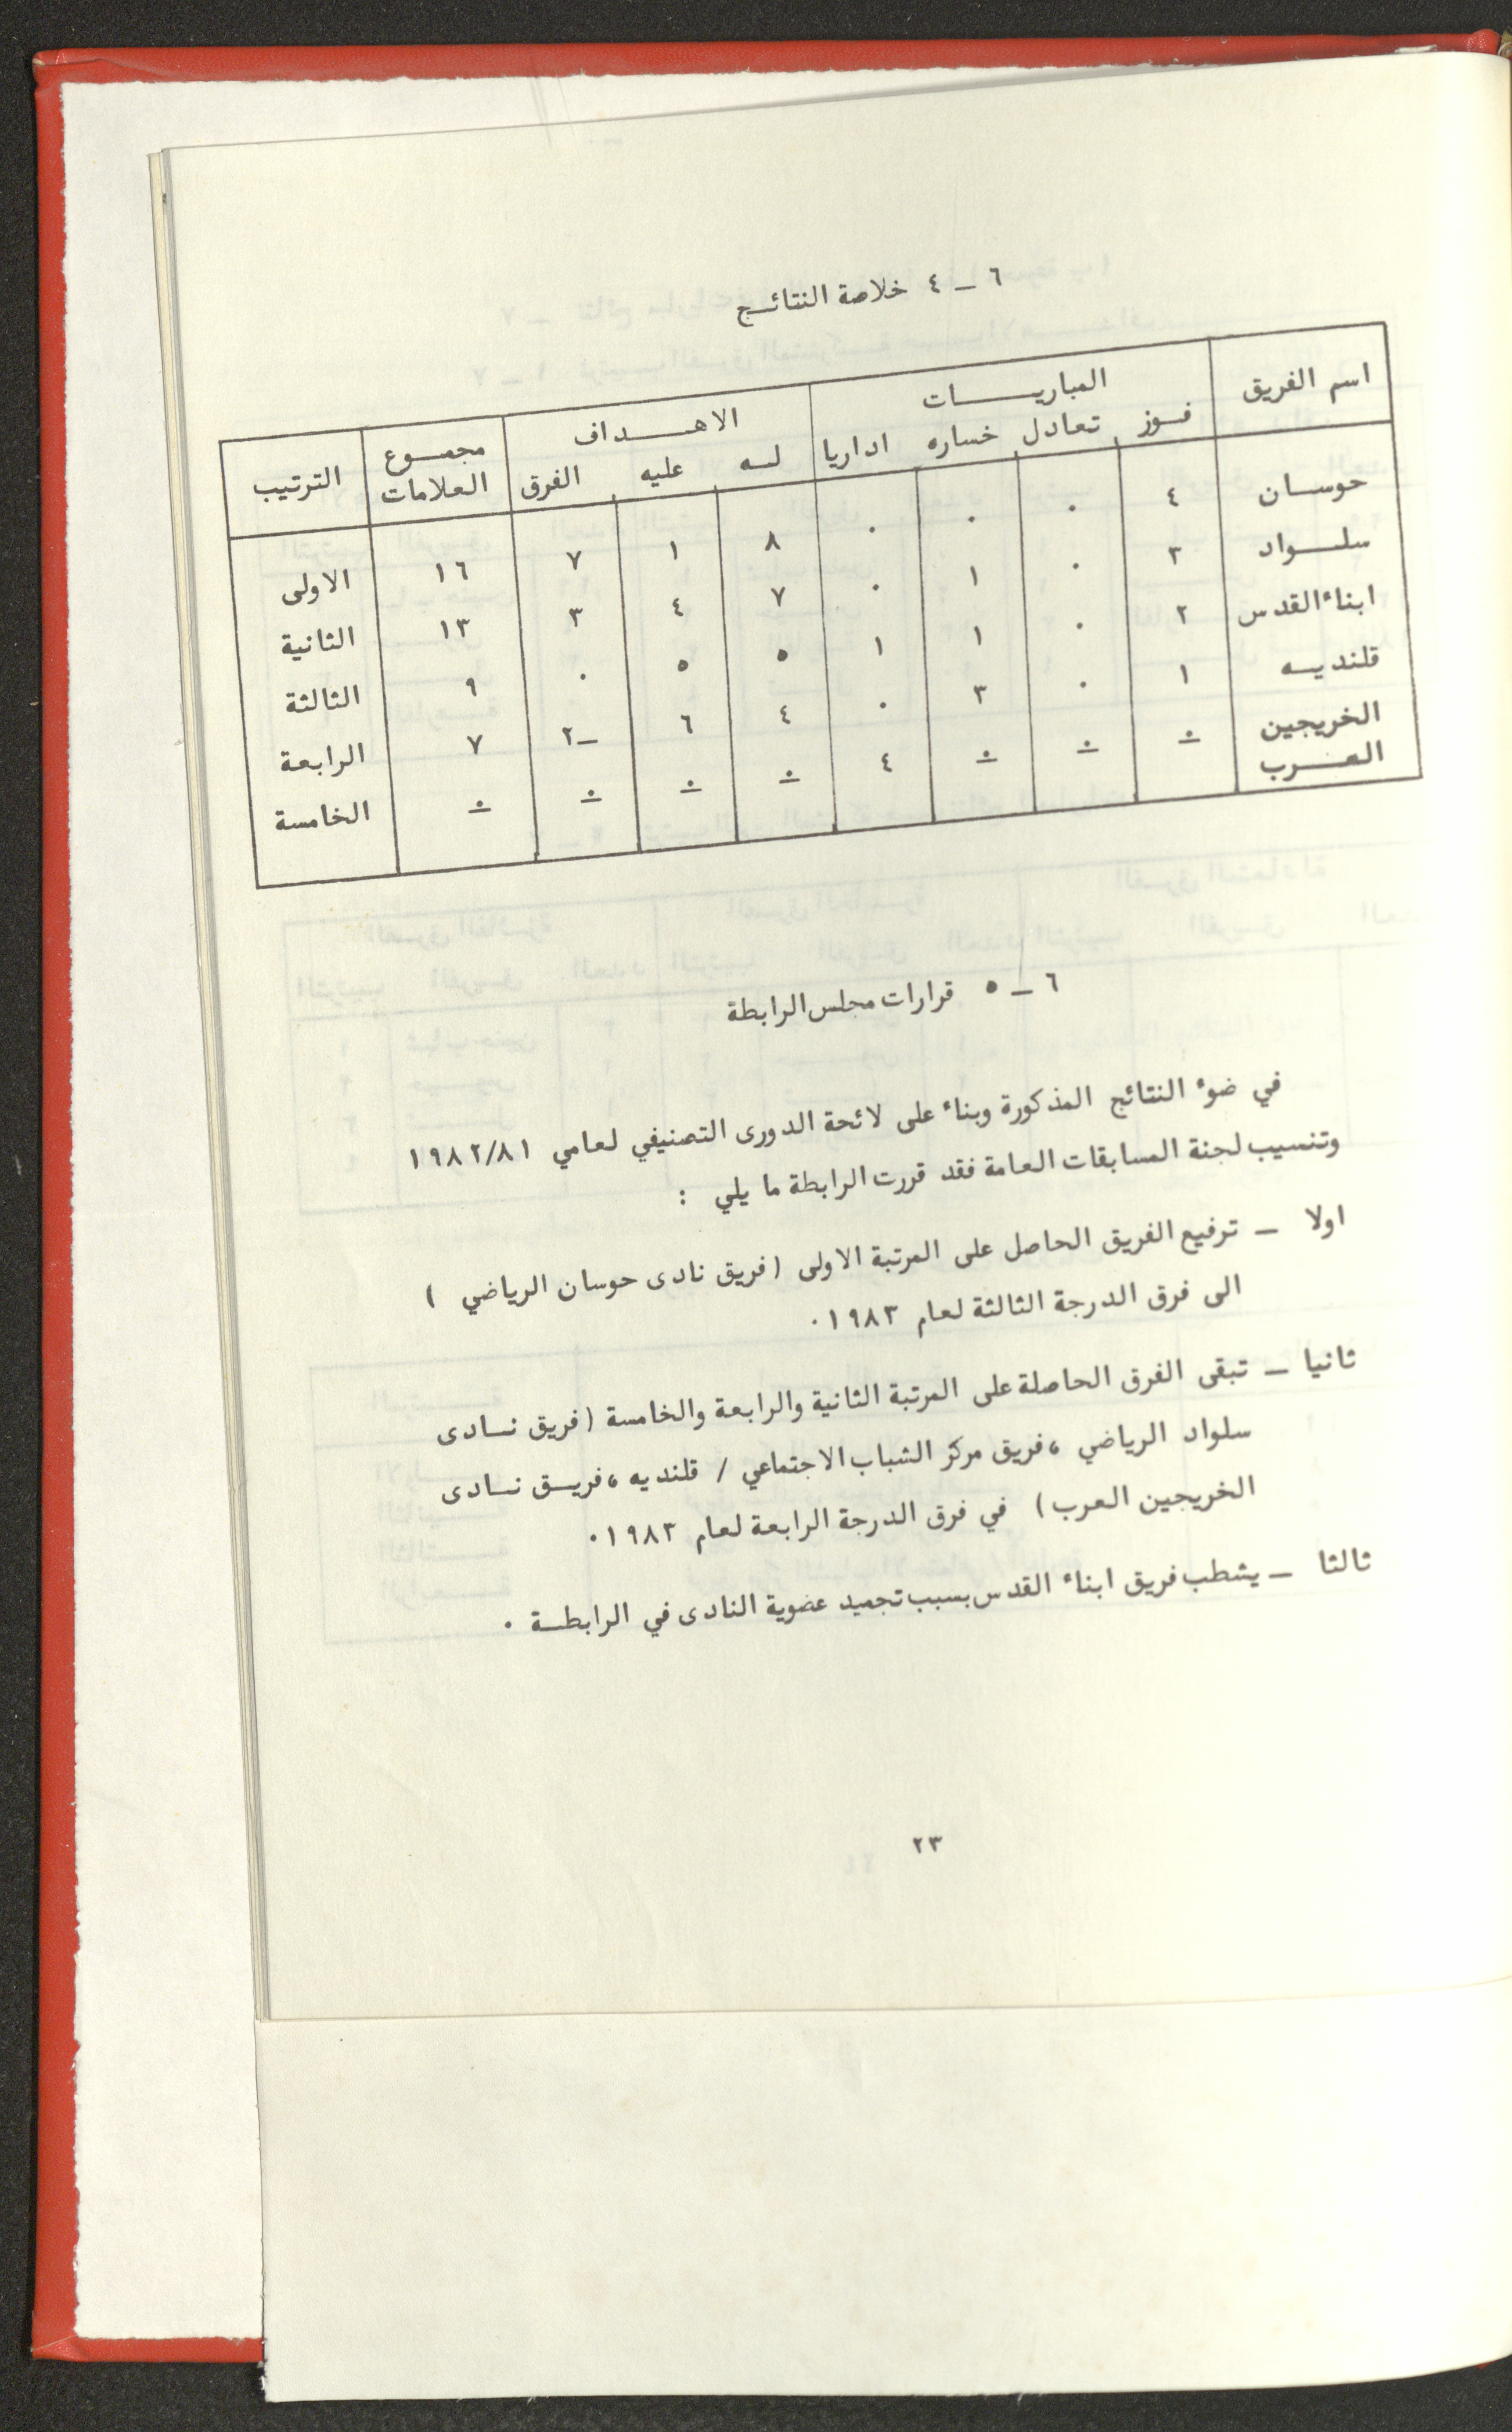 ٦ ـ ٤ خلاصة النتائـج
اسم الفريق المباريــــات الاهــداف مجمـوع العلامات الترتيب
فـوز تعادل خساره اداريا لـه عليه الفرق
حوسـان ٤ ٠ ٠ ٠ ٨ ١ ٧ ١٦ الاولى
سلـواد ٣ ٠ ١ ٠ ٧ ٤ ٣ ١٣ الثانية
ابناء القدس ٢ ٠ ١ ١ ٥ ٥ ٠ ٩ الثالثة
قلنديـه ١ ٠ ٣ ٠ ٤ ٦ ـ٢ ٧ الرابعة
الخريجين العـرب ٠ ٠ ٠ ٤ ٠ ٠ ٠ ٠ الخامسة
٦ ـ ٥ قرارات مجلس الرابطة
في ضوء النتائج المذكورة وبناء على لائحة الدورى التصنيفي لعامي ١٩٨٢/٨١
وتنسيب لجنة المسابقات العامة فقد قررت الرابطة ما يلي :
اولا ـ ترفيع الفريق الحاصل على المرتبة الاولى (فريق نادى حوسان الرياضي )
الى فرق الدرجة الثالثة لعام ١٩٨٣٠
ثانيا ـ تبقى الفرق الحاصلة على المرتبة الثانية والرابعة والخامسة (فريق نـادى
سلواد الرياضي ، فريق مركز الشباب الاجتماعي / قلنديه ، فريـق نـادى
الخريجين العرب) في فرق الدرجة الرابعة لعام ١٩٨٣٠
ثالثا ـ يشطب فريق ابناء القدس بسبب تجميد عضوية النادى في الرابطـة ٠
٢٣